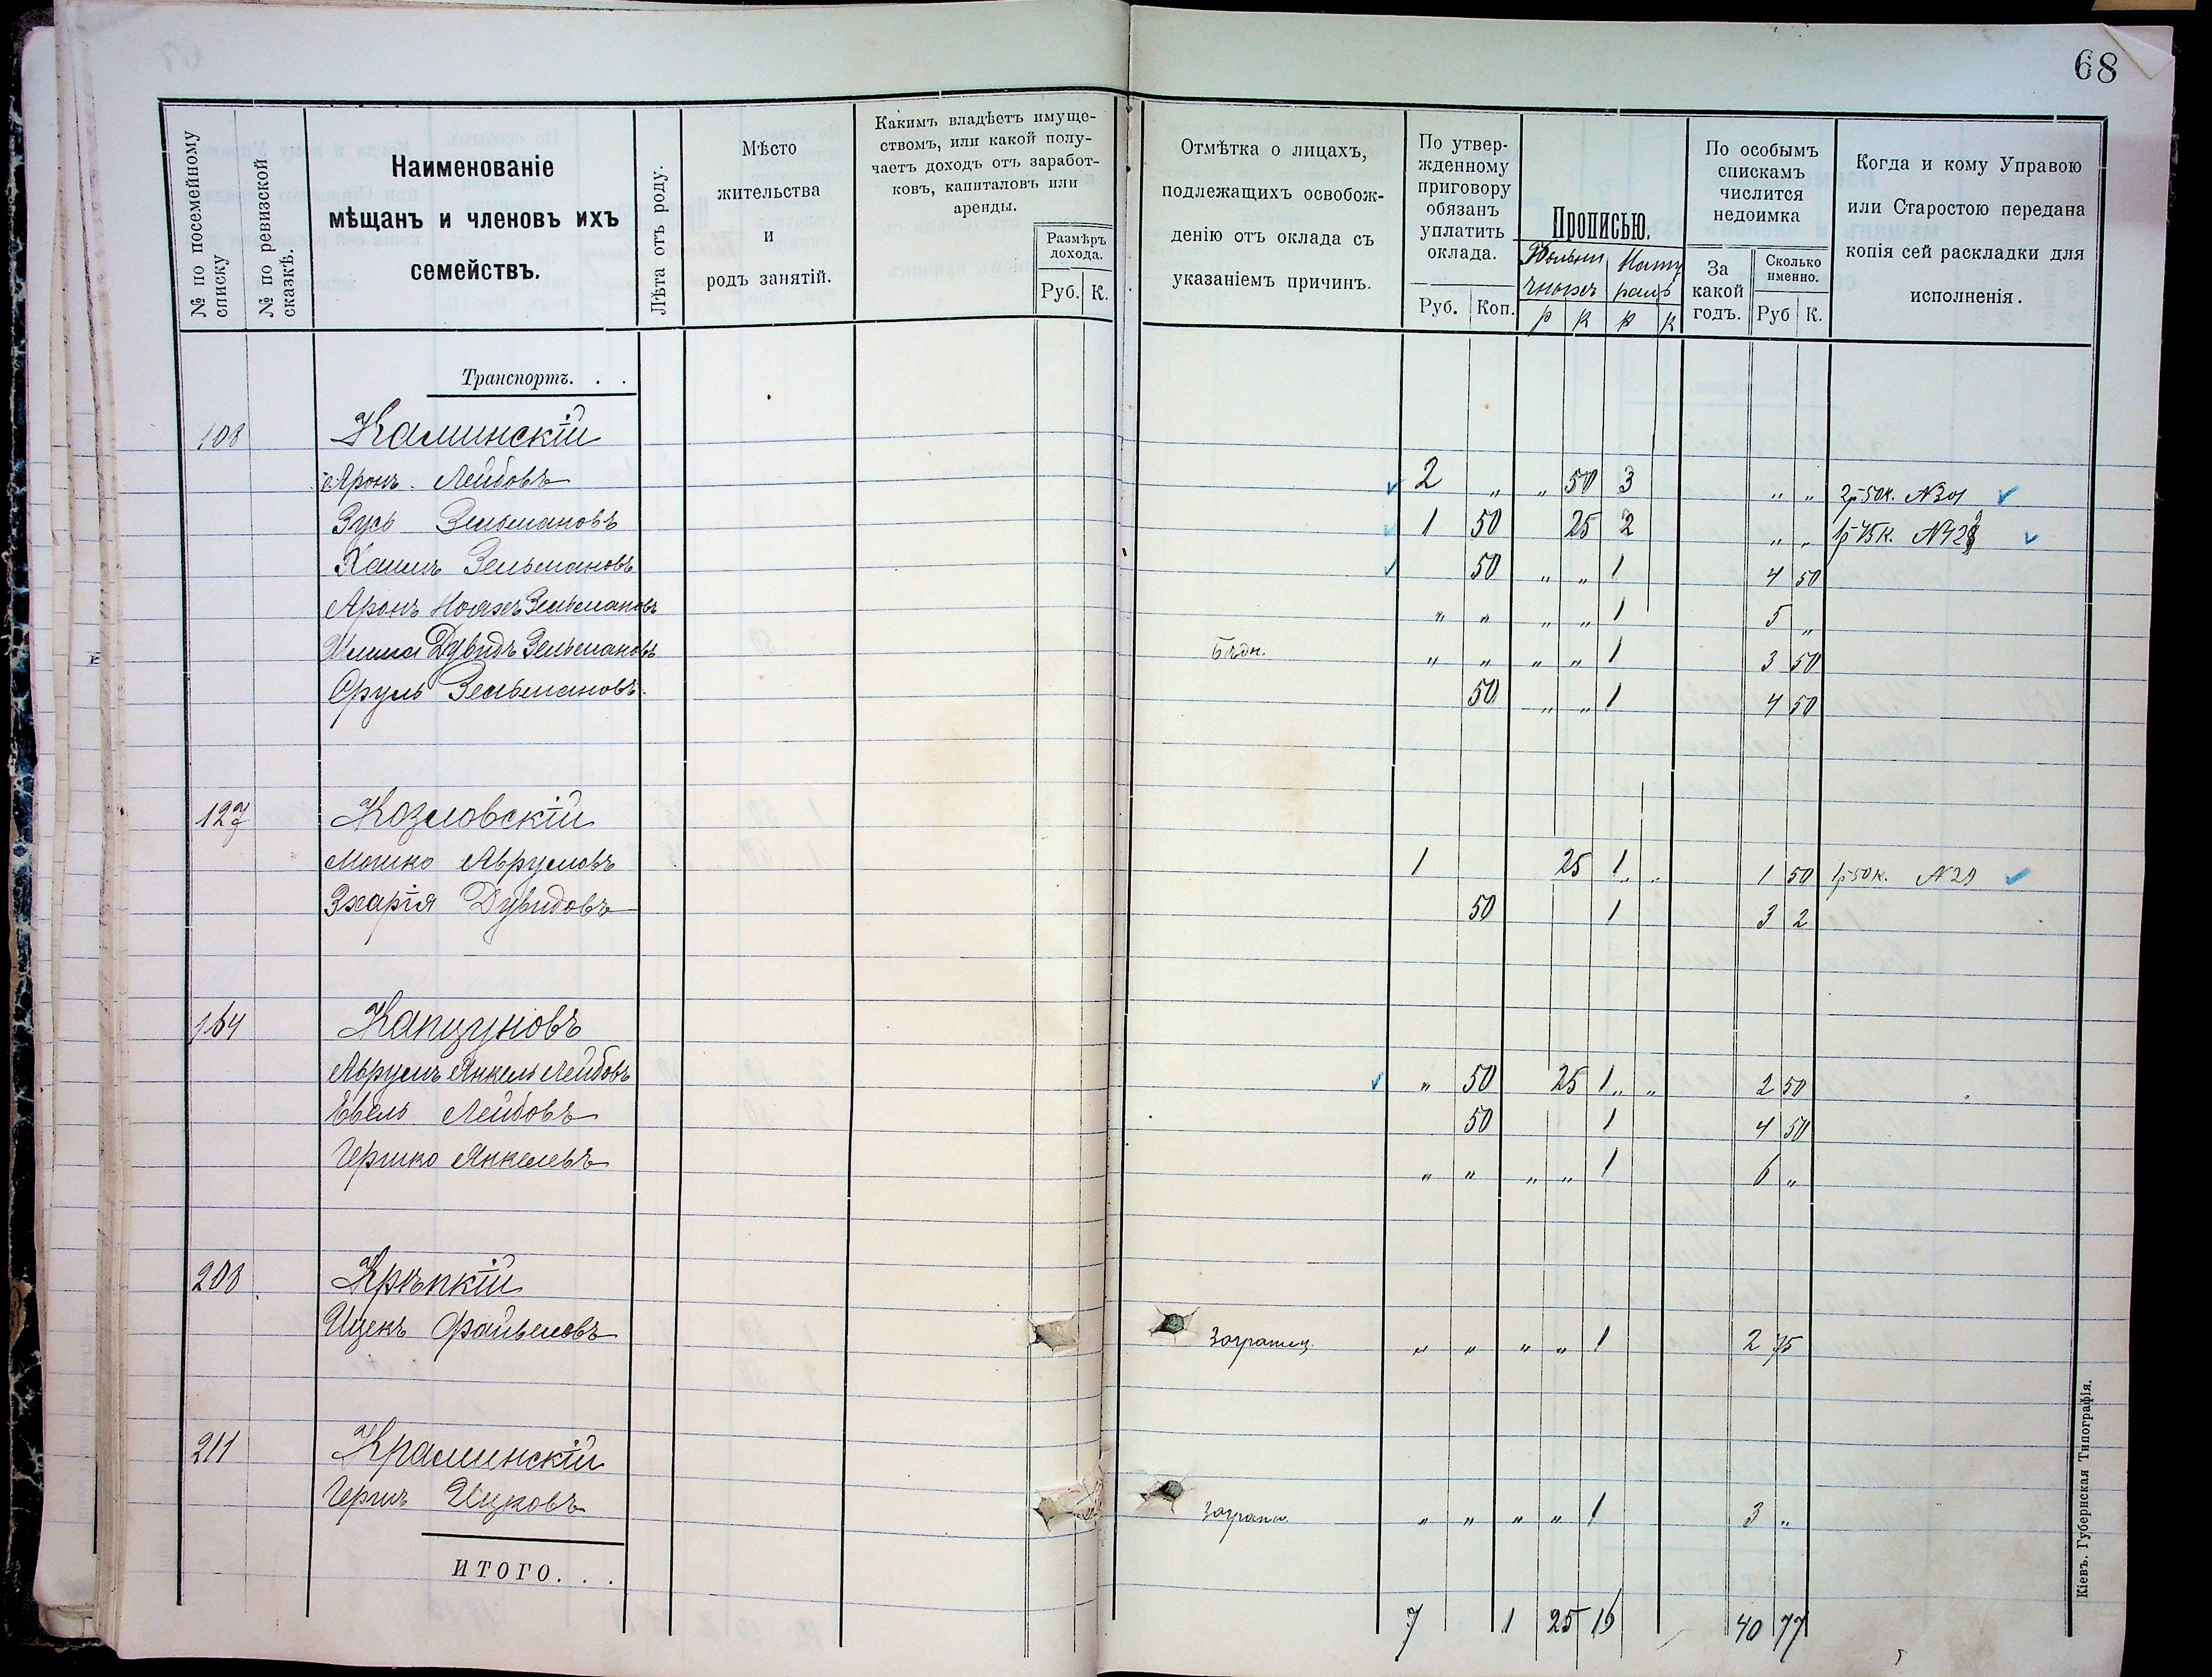 68
№ по посемейному списку
№ по ревизской сказкѣ.
Наименованіе
мѣщанъ и членовъ ихъ
семействъ.
Лѣта отъ роду.
Мѣсто
жительства
и
родъ занятій.
Какимъ владѣетъ имуще-
ствомъ, или какой полу-
чаетъ доходъ отъ заработ-
ковъ, капиталовъ или
аренды.
Размѣръ
дохода.
Руб. К.
Отмѣтка о лицахъ,
подлежащихъ освобож-
денію отъ оклада съ
указаніемъ причинъ.
По утвер-
жденному
приговору
обязанъ
уплатить
оклада.
Руб. Коп.
Прописью.
р к р к
По особымъ
спискамъ
числится
недоимка
За
какой
годъ.
Сколько
именно.
Руб К.
Когда и кому Управою
или Старостою передана
копія сей раскладки для
исполненія.
Транспортъ. . .
108 Каминскій
Аронъ Лейбовъ 2 „ „ 50 3 „ „ 2р 50к. №301
Зусь Зельмановъ 1 50 25 2 „ „ 1р 75к.
Хаимъ Зельмановъ 50 „ „ 1 4 50
Аронъ Зельмановъ „ „ „ „ 1 5 „
Дувидъ Зельмановъ Бѣдн. „ „ „ „ 1 3 50
Сруль Зельмановъ. 50 „ „ 1 4 50
127 Козловскій
Мошко Аврумовъ 1 25 1 „ „ 1 50 1р 50к. №29
Зхарія Дувидовъ 50 1 3 2
164 Капцуновъ
Аврумъ Янкель Лейбовъ „ 50 25 1 „ „ 2 50
Евель Лейбовъ 50 1 4 50
Гершко Янкелевъ „ „ „ „ 1 6 „
208 Крѣпкій
Ицекъ Файвелевъ Заграниц. „ „ „ „ 1 2 75
211 Краминскій
Гершъ Ицковъ Загран. „ „ „ „ 1 3 „
ИТОГО. . .
7 1 25 15 40 77
Кіевъ. Губернская Типографія.